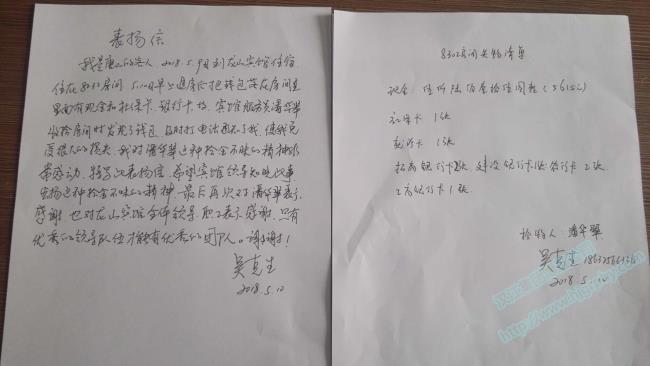 表扬信
我是唐山的客人，2018.5.9日到龙山宾馆住宿
住在8302房间，5.10日早上退房后把钱包落在房间里
里面有现金和社保卡、银行卡
宾馆服务员潘华翠
收拾房间时发现了钱包 及时打电话通知了我，使我免
受很大的损失，我对潘华翠这种拾金不昧的精神非
常感动，特写此表扬信，希望宾馆领导知晓此事
表扬这种拾金不昧的精神，最后再次对潘华翠表示
感谢 也对龙山宾馆全体领导、职工表示感谢，只有
优秀的领导队伍才能有优秀的团队。谢谢！
吴克生
2018.5.10
8302房间失物清单
现金：
1张
1张
招商银行卡2张 建设银行卡1张 2张
工商银行卡1张
拾物人 潘华翠
吴克生
2018.5.10